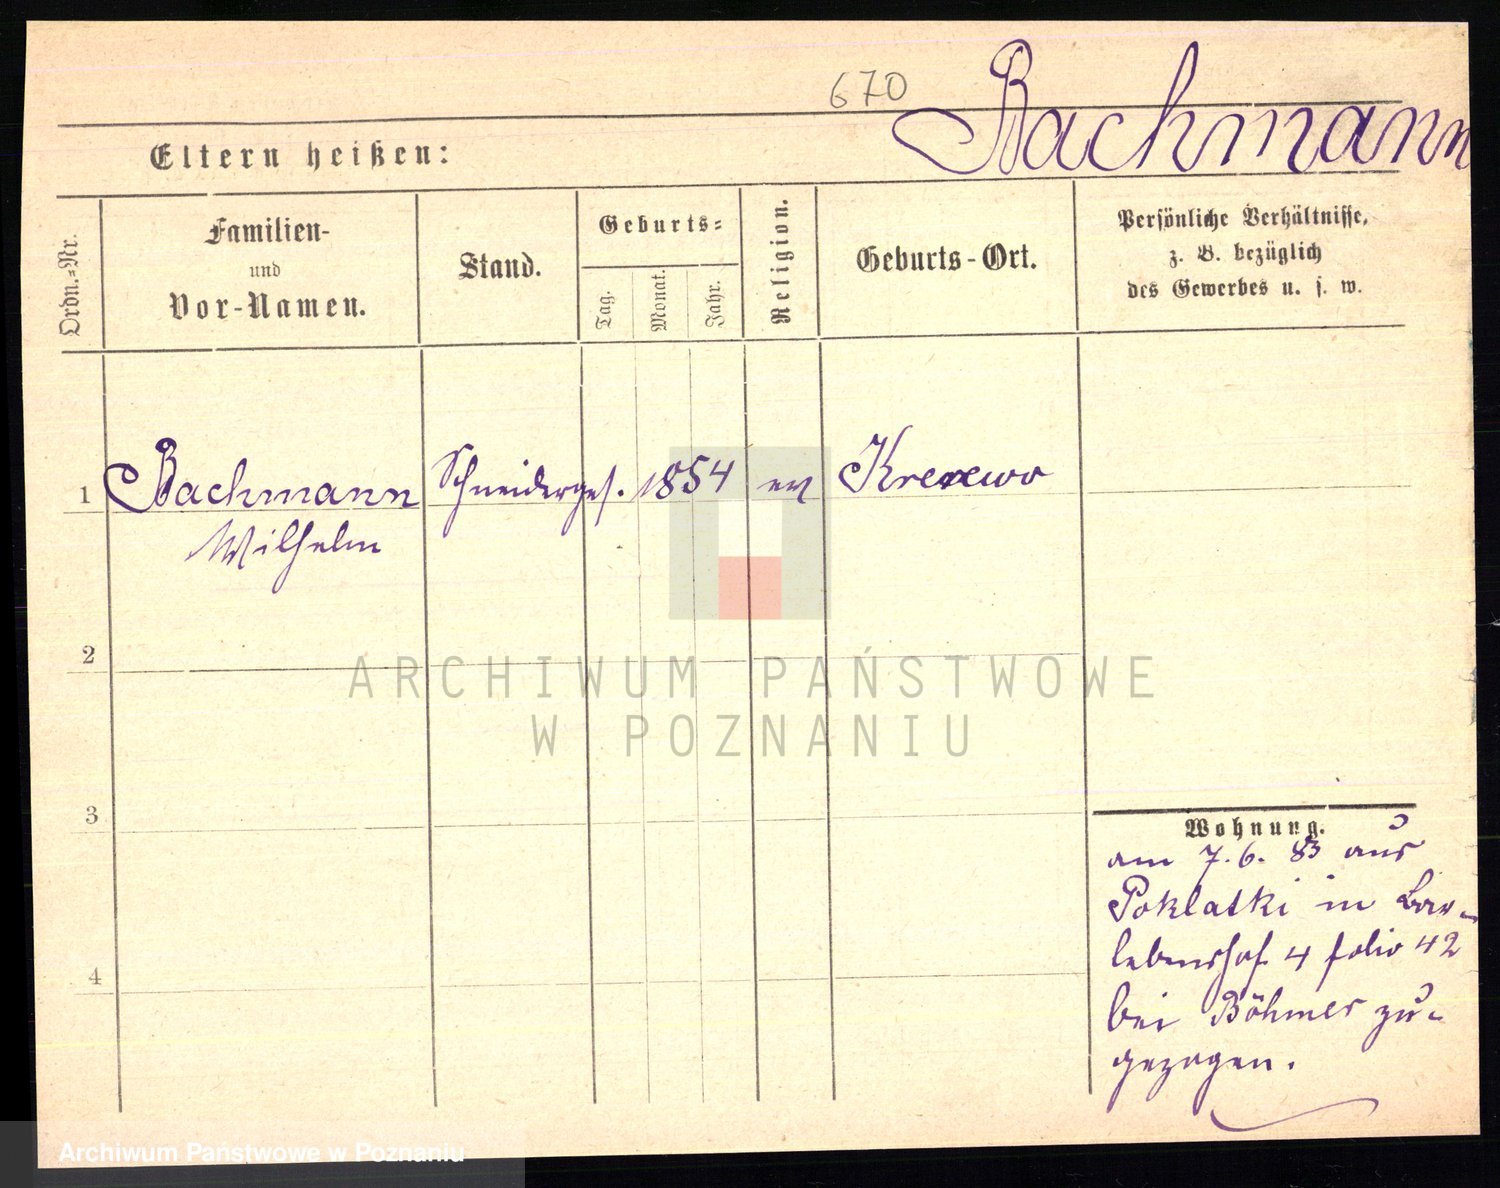 670
Bachmann
Eltern heißen:
Ordn.-Nr.
Familien-
und
Vor-Namen.
Stand.
Geburts-
Tag.
Monat.
Jahr.
Religion.
Geburts-Ort.
Persönliche Verhältnisse,
z. B. bezüglich
des Gewerbes u. s. w.
1 Bachmann Schneiderges. 1854 ev
Wilhelm
2
ARCHIWUM PAŃSTWOWE
W POZNANIU
3
4
Wohnung.
am 7. 6. 83 aus
Poklatki in
4 folio 42
bei Böhmer zu-
gezogen.
Archiwum Państwowe w Poznaniu